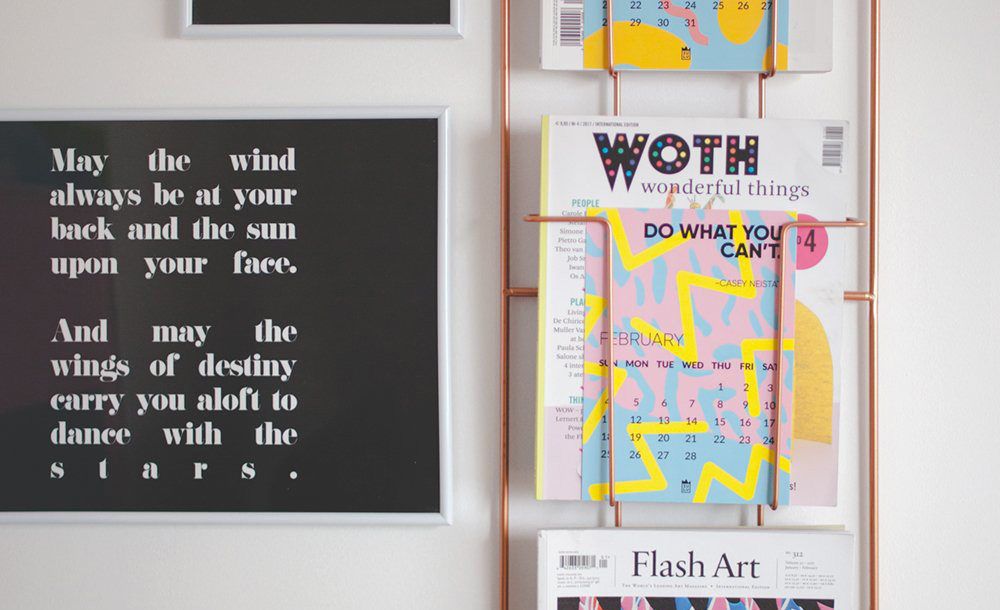 May the wind
always be at your
back and the sun
upon your face.
And may the
wings of destiny
carry you aloft to
dance with the
stars.
22 23 24 25 26 27
29 30 31
INTERNATIONAL EDITION
WOTH
wonderful things
PEOPLE
Carole
Simone
Pietro Ga
Theo van
Job
Iwan
4
DO WHAT YOU
CAN'T.
-CASEY NEISTAT
Living
De Chirico
Muller Van
at
Paula
Salone
4
3
WOW –
Lernert
the
FEBRUARY
SUN MON TUE WED THU FRI SAT
1 2 3
4 5 6 7 8 9 10
12 13 14 15 16 17
19 20 21 22 23 24
26 27 28
Flash Art
THE WORLD'S LEADING ART MAGAZINE • INTERNATIONAL EDITION
312
January / February